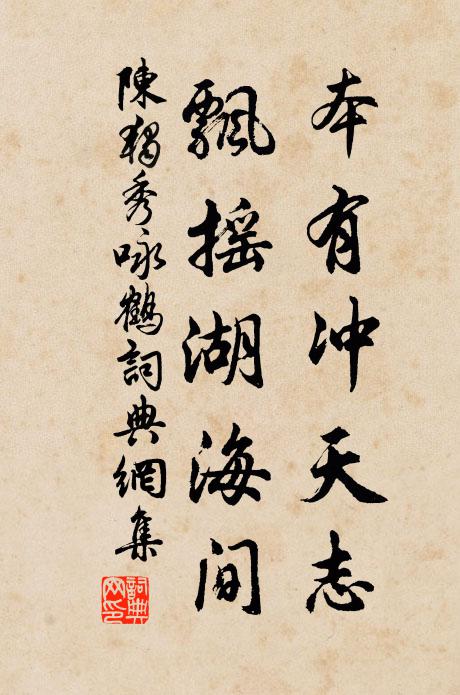 本有冲天志
飄摇湖海間
陳獨秀咏鶴詞典網集
詞典网印